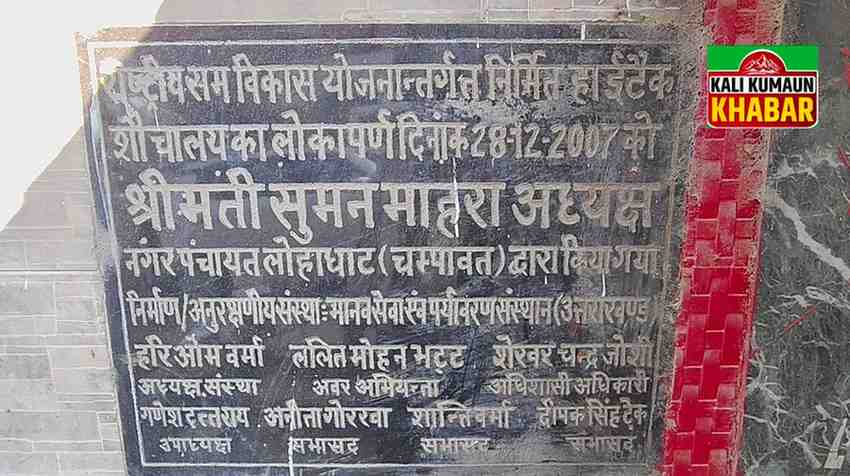 राष्ट्रीय सम विकास योजनान्तर्गत निर्मित हाईटैक
शौचालय का लोकापर्ण दिनांक 28-12-2007 को
श्रीमती सुमन माहरा अध्यक्ष
नगर पंचायत लोहाघाट (चम्पावत) द्वारा किया गया
निर्माण/अनुरक्षणीय संस्थाः मानव सेवा एंव पर्यावरण संस्थान (उत्तराखण्ड
हरि ओम वर्मा ललित मोहन भट्ट शेखर चन्द्र जोशी
अध्यक्ष संस्था अवर अभियन्ता अधिशासी अधिकारी
गणेश दत्त राय अनीता गोरखा शान्ति वर्मा दीपक सिंह टेक
उपाध्यक्ष सभासद सभासद सभासद
KALI KUMAUN
KHABAR